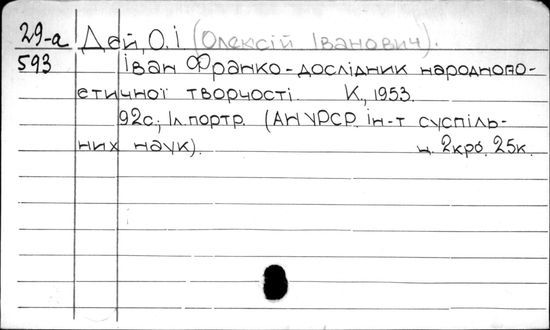 29-а Дей, О.І (Олексій Іванович).
593 Іван Франко-дослідник народнопо-
етичної творчості. К., 1953.
92с; Іл.портр. (АН УРСР. ін-т суспіль-
них наук). ц. 2крб. 25к.